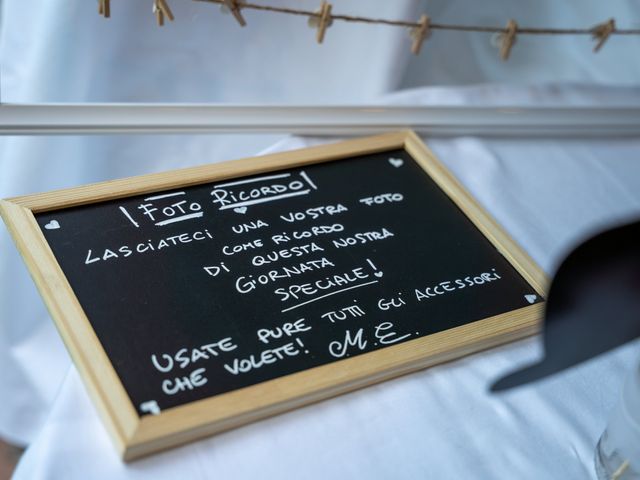 FOTO RICORDO
LASCIATECI UNA VOSTRA FOTO
COME RICORDO
DI QUESTA NOSTRA
GIORNATA
SPECIALE!
USATE PURE TUTTI GLI ACCESSORI
CHE VOLETE! M.E.